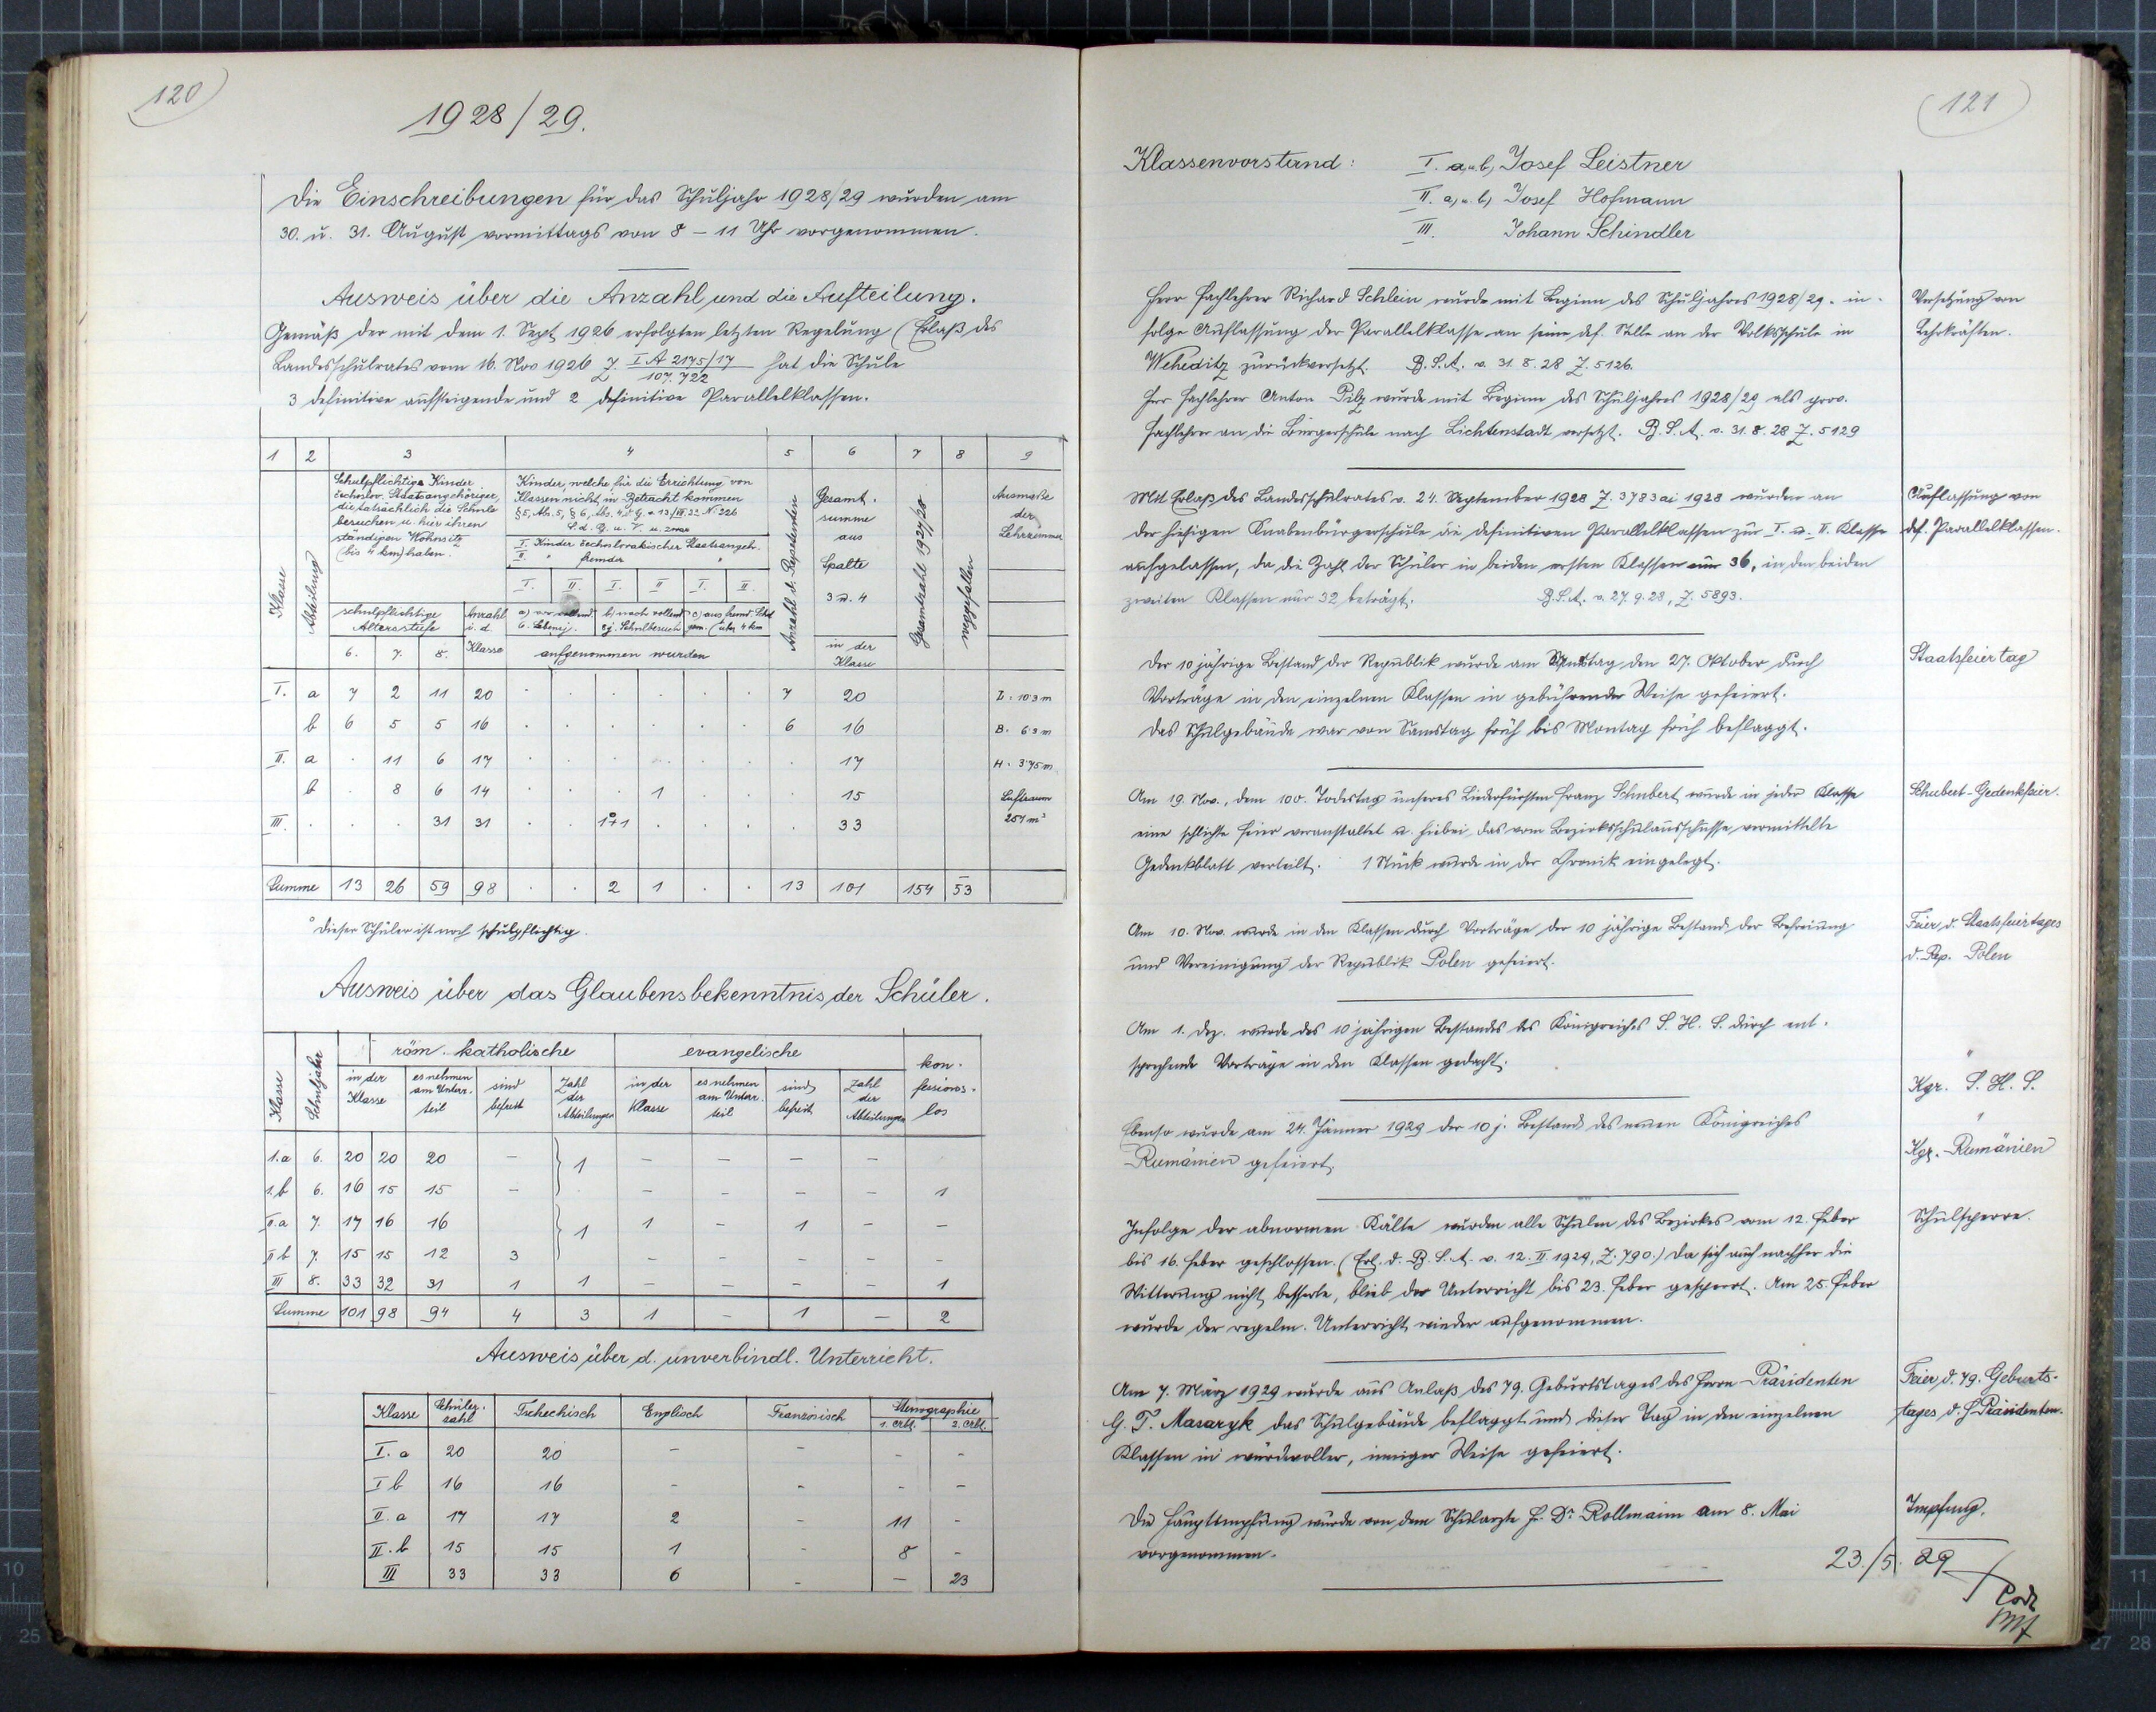 120
1928/29.
Die Einschreibungen für das Schuljahr 1928/29 wurden am
30. u. 31. August vormittags von 8 – 11 Uhr vorgenommen.
Ausweis über die Anzahl und die Aufteilung.
Gemäß der mit dem 1. Sept 1926 erfolgten letzten Regelung (Erlaß des
Landesschulrates vom 16. Nov 1926 Z. I A 2175/17 / 107.722 hat die Schule
3 definitive aufsteigende und 2 definitive Parallelklassen.
1 2 3 4 5 6 7 8 9
Klasse
Abteilung
Schulpflichtige Kinder
čechoslov. Staatsangehöriger,
die tatsächlich die Schule
besuchen u. hier ihren
ständigen Wohnsitz
(bis 4 km) haben.
schulpflichtige
Altersstufe
6. 7. 8.
Anzahl
i. d.
Klasse
Kinder, welche für die Errichtung von
Klassen nicht in Betracht kommen
§5, Abs. 5, § 6, Abs. 4, d. G. v. 13./VII. 22 No 226
S. d. G. u. V. u. zwar
I. Kinder čechoslovakischer Staatsangeh.
II. " fremder "
I. II. I. II I. II.
a) vor vollend.
6. Lebensj.
b) nach vollend.
8j. Schulbesuch
c) aus fremd. Schul
gem. (über 4 km
aufgenommen wurden
Anzahl d. Repetenten
Gesamt-
summe
aus
Spalte
3 u. 4
in der
Klasse
Gesamtzahl 1927/28
weggefallen
Ausmaße
der
Lehrzimmer
I. a 7 2 11 20 · · · · · · 7 20 L: 10·3 m
b 6 5 5 16 · · · · · · 6 16 B. 6·3 m
II. a · 11 6 17 · · · · · · · 17 H. 3·75 m
b · 8 6 14 · · · 1 · · · 15 Luftraum
III. · · · 31 31 · · 1°+1 · · · · 33 251 m³
Summe 13 26 59 98 · · 2 1 · · 13 101 154 –53
° Dieser Schüler ist noch schulpflichtig.
Ausweis über das Glaubensbekenntnis der Schüler.
Klasse
Schuljahr
röm.-katholische evangelische kon-
fessions-
los
in der
Klasse
es nehmen
am Unter-
teil
sind
befreit
Zahl
der
Abteilungen
in der
Klasse
es nehmen
am Unter-
teil
sind
befreit
Zahl
der
Abteilungen
1.a 6. 20 20 20 – } 1 – – – –
1.b 6. 16 15 15 – – – – – 1
II.a 7. 17 16 16 } 1 1 – 1 – –
II b 7. 15 15 12 3 – – – – –
III 8. 33 32 31 1 1 – – – – 1
Summe 101 98 94 4 3 1 – 1 – 2
Ausweis über d. unverbindl. Unterricht.
Klasse Schüler-
zahl Tschechisch Englisch Französisch Stenographie
1. Abt. 2. Abt.
I. a 20 20 – – – –
I b 16 16 – – – –
II. a 17 17 2 – 11 –
II. b 15 15 1 – 8 –
III 33 33 6 – – 23
121
Klassenvorstand: I. a u. b, Josef Leistner
II. a, u. b, Josef Hofmann
III. Johann Schindler
Herr Fachlehrer Richard Schlein wurde mit Beginn des Schuljahres 1928/29. in-
folge Auflassung der Parallelklasse an seine def. Stelle an der Volksschule in
Weheditz zurückversetzt. B.S.A. v. 31. 8. 28 Z. 5126.
Herr Fachlehrer Anton Pilz wurde mit Beginn des Schuljahres 1928/29 als prov.
Fachlehrer an die Bürgerschule nach Lichtenstadt versetzt. B.S.A. v. 31. 8. 28 Z. 5129
Versetzung von
Lehrkräften.
Mit Erlaß des Landesschulrates v. 24. September 1928 Z. 3783 ai 1928 wurden an
der hiesigen Knabenbürgerschule die definitiven Parallelklassen zur I. u. II. Klasse
aufgelassen, da die Zahl der Schüler in beiden ersten Klassen nur 36, in den beiden
zweiten Klassen nur 32 beträgt. B.S.A. v. 27. 9. 28, Z. 5893.
Auflassung von
def. Parallelklassen.
Der 10 jährige Bestand der Republik wurde am Samstag den 27. Oktober durch
Vorträge in den einzelnen Klassen in gebührender Weise gefeiert.
Das Schulgebäude war von Samstag früh bis Montag früh beflaggt.
Staatsfeiertag
Am 19. Nov., dem 100. Todestag unseres Liederfürsten Franz Schubert, wurde in jeder Klasse
eine schlichte Feier veranstaltet u. hiebei das vom Bezirksschulausschusse vermittelte
Gedenkblatt verteilt. 1 Stück wurde in der Chronik eingelegt.
Schubert-Gedenkfeier.
Am 10. Nov. wurde in den Klassen durch Vorträge der 10 jährige Bestand der Befreiung
und Vereinigung der Republik Polen gefeiert.
Feier d. Staatsfeiertages
d. Rep. Polen
Am 1. Dez. wurde des 10 jährigen Bestandes des Königreiches S. H. S. durch ent-
sprechende Vorträge in den Klassen gedacht.
"
Kgr. S. H. S.
Ebenso wurde am 24. Jänner 1929 der 10 j. Bestand des neuen Königreiches
Rumänien gefeiert.
"
Kgr. Rumänien
Infolge der abnormen Kälte wurden alle Schulen des Bezirkes vom 12. Feber
bis 16. Feber geschlossen. (Erl. d. B.S.A. v. 12. II. 1929, Z. 790.) Da sich auch nachher die
Witterung nicht besserte, blieb der Unterricht bis 23. Feber gesperrt. Am 25. Feber
wurde der regelm. Unterricht wieder aufgenommen.
Schulsperre.
Am 7. März 1929 wurde aus Anlaß des 79. Geburtstages des Herrn Präsidenten
G. T. Masaryk das Schulgebäude beflaggt und dieser Tag in den einzelnen
Klassen in würdevoller, inniger Weise gefeiert.
Feier d. 79. Geburts-
tages d. H. Präsidenten.
Die Hauptimpfung wurde von dem Schularzte H. Dr. Rollmann am 8. Mai
vorgenommen.
Impfung.
23./5. 29